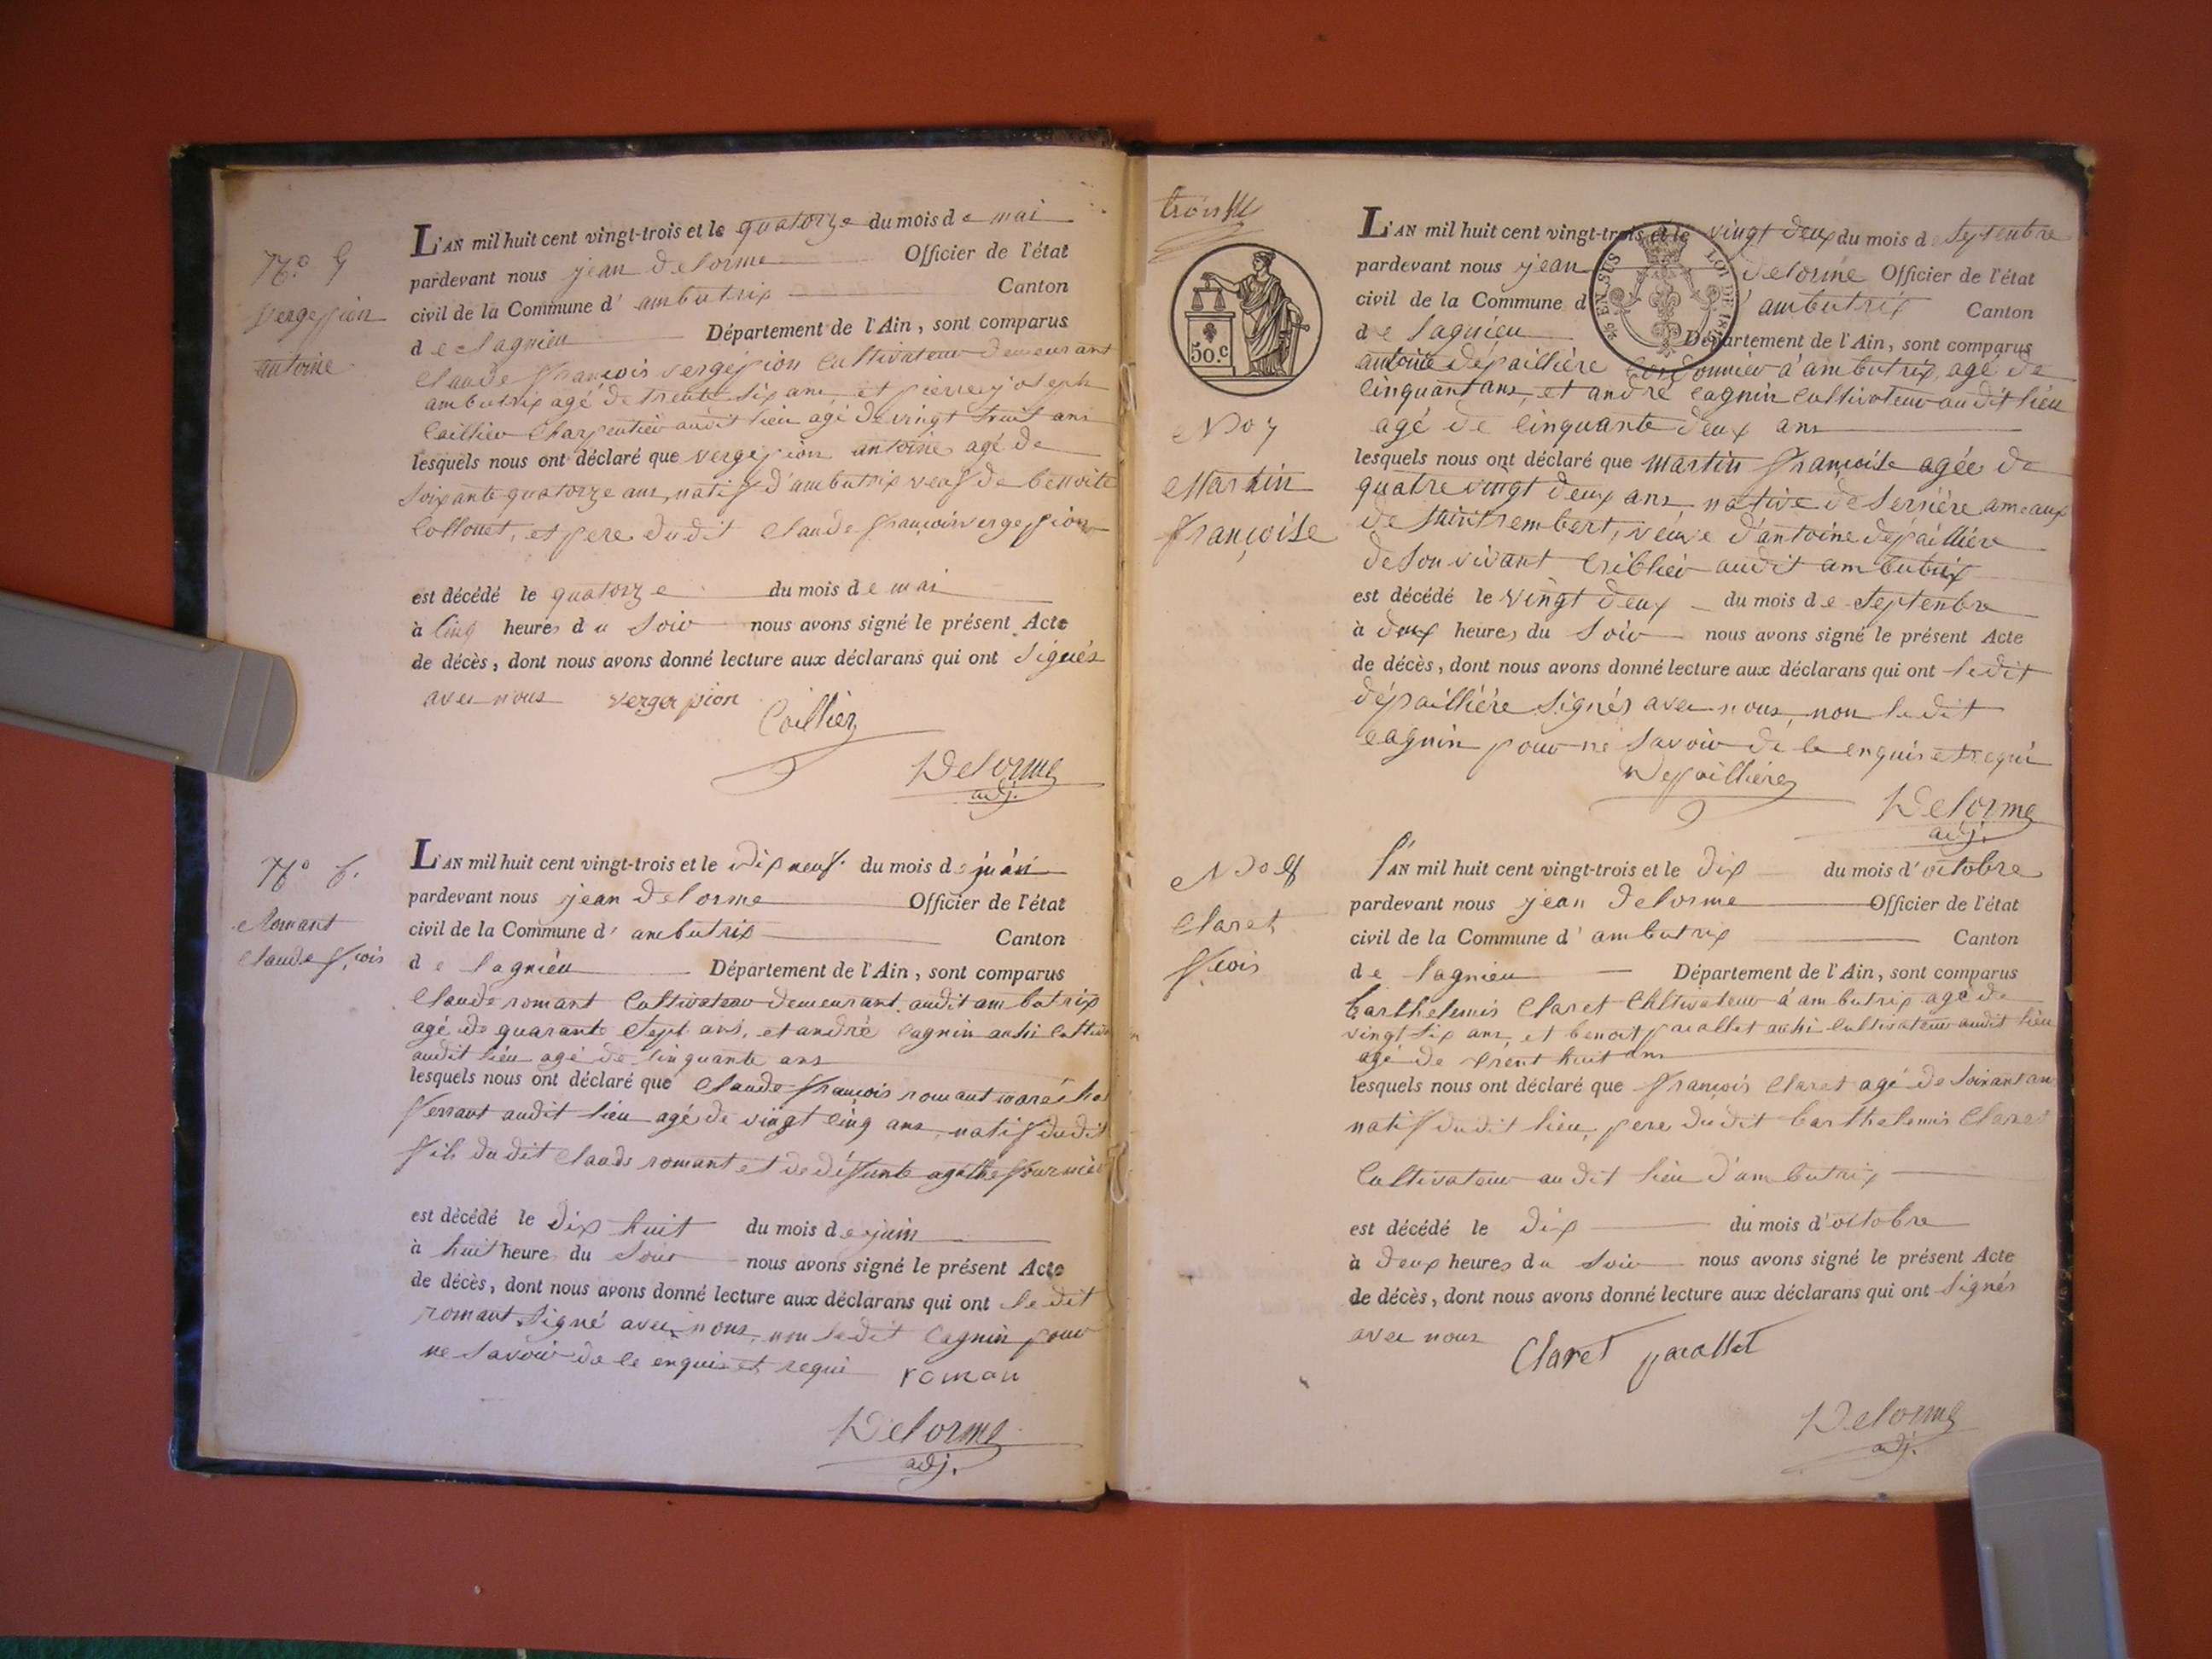 N.o 5
vergepion
antoine
L'AN mil huit cent vingt-trois et le quatorze du mois de mai
pardevant nous jean delorme Officier de l'état
civil de la Commune d'ambutrix Canton
de lagnieu Département de l'Ain, sont comparus
claude françois vergepion cultivateur demeurant
ambutrix agé de trente six ans, et pierre joseph
caillier charpentier audit lieu agé de vingt huit ans
lesquels nous ont déclaré que vergepion antoine agé de
soixante quatorze ans, natif d'ambutrix veuf de benoite
collouet, et pere dudit claude françois vergepion
est décédé le quatorze du mois de mai
à cinq heures du soir nous avons signé le présent Acte
de décès, dont nous avons donné lecture aux déclarans qui ont signés
avec nous vergepion
Caillier
Delorme
adj.
N.o 6.
Romant
claude f.cois
L'AN mil huit cent vingt-trois et le dix neuf du mois de juin
pardevant nous jean delorme Officier de l'état
civil de la Commune d'ambutrix Canton
de lagnieu Département de l'Ain, sont comparus
claude romant cultivateur demeurant audit ambutrix
agé de quarante sept ans, et andré cagnin aussi cultiv
audit lieu agé de cinquante ans
lesquels nous ont déclaré que claude françois romant maréchal
ferrant audit lieu agé de vingt cinq ans, natif dudit
fils dudit claude romant et de défunte agathe fournier
est décédé le dix huit du mois de juin
à huit heures du soir nous avons signé le présent Acte
de décès, dont nous avons donné lecture aux déclarans qui ont ledit
romant signé avec nous, non ledit cagnin pour
ne savoir de ce enquis et requi roman
Delorme
adj.
50.c
EN SUS LOI DE
No 7
Martin
françoise
L'AN mil huit cent vingt-trois et le vingt deux du mois de septembre
pardevant nous jean delorme Officier de l'état
civil de la Commune d'ambutrix Canton
de lagnieu Département de l'Ain, sont comparus
antoine dépaillière cordonnier à ambutrix, agé de
cinquant ans, et andré cagnin cultivateur audit lieu
agé de cinquante deux ans
lesquels nous ont déclaré que martin françoise agée de
quatre vingt deux ans native de serrière ameaux
de saint rembert, veuve d'antoine dépaillière
de son vivant criblier audit ambutrix
est décédé le vingt deux du mois de septenbre
à deux heures du soir nous avons signé le présent Acte
de décès, dont nous avons donné lecture aux déclarans qui ont ledit
dépaillière signés avec nous, non ledit
cagnin pour ne savoir de ce enquis et requi
Depaillieres
Delorme
adj.
No 8
Claret
f.cois
L'AN mil huit cent vingt-trois et le dix du mois d'octobre
pardevant nous jean delorme Officier de l'état
civil de la Commune d'ambutrix Canton
de lagnieu Département de l'Ain, sont comparus
barthelemis Claret Cultivateur à ambutrix agé de
vingt six ans, et benoit pacallet aussi cultivateur audit lieu
agé de trent huit ans
lesquels nous ont déclaré que françois Claret agé de soixant an
natif dudit lieu, pere dudit barthelemis Claret
Cultivateur audit lieu d'ambutrix
est décédé le dix du mois d'octobre
à deux heures du soir nous avons signé le présent Acte
de décès, dont nous avons donné lecture aux déclarans qui ont signés
avec nous Claret pacallet
Delorme
adj.